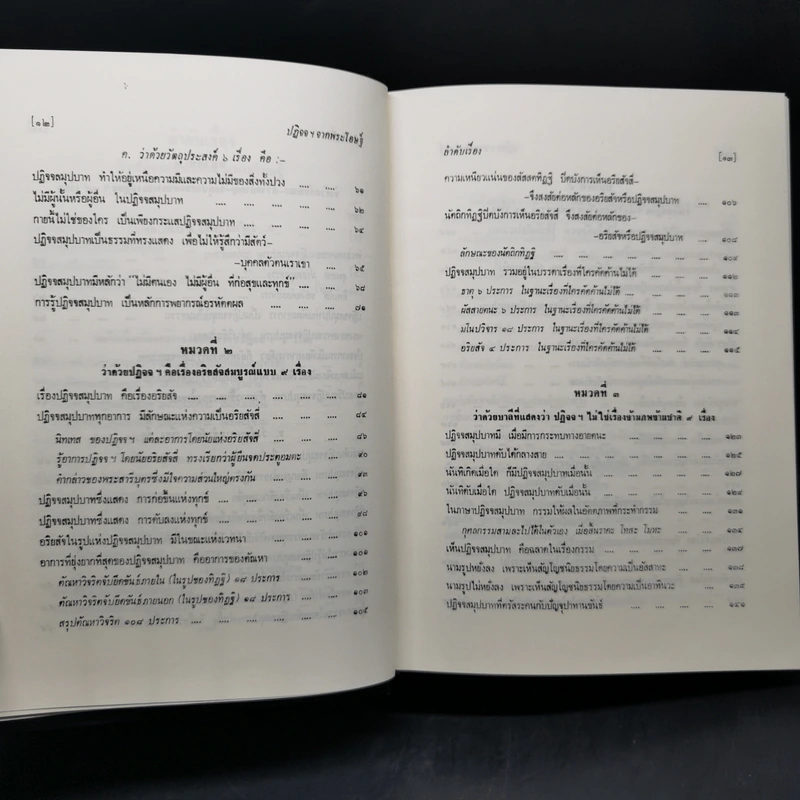 [๑๒]
ปฏิจจฯจากพระโอษฐ์
ค. ว่าด้วยวัตถุประสงค์ ๖ เรื่อง คือ :-
ปฏิจจสมุปบาท ทำให้อยู่เหนือความมีและความไม่มีของสิ่งทั้งปวง .... .... ๖๑
ไม่มีผู้นั้นหรือผู้อื่น ในปฏิจจสมุปบาท .... .... .... .... ๖๒
กายนี้ไม่ใช่ของใคร เป็นเพียงกระแสปฏิจจสมุปบาท .... .... .... ๖๔
ปฏิจจสมุปบาทเป็นธรรมที่ทรงแสดง เพื่อไม่ให้รู้สึกว่ามีสัตว์-
-บุคคลตัวตนเราเขา .... ๖๕
ปฏิจจสมุปบาทมีหลักว่า "ไม่มีตนเอง ไม่มีผู้อื่น ที่ก่อสุขและทุกข์" .... ๖๘
การรู้ปฏิจจสมุปบาท เป็นหลักการพยากรณ์อรหัตตผล .... .... ๗๑
หมวดที่ ๒
ว่าด้วยปฏิจจ ฯ คือเรื่องอริยสัจสมบูรณ์แบบ ๙ เรื่อง
เรื่องปฏิจจสมุปบาท คือเรื่องอริยสัจ .... .... .... .... ๘๑
ปฏิจจสมุปบาททุกอาการ มีลักษณะแห่งความเป็นอริยสัจสี่ .... .... ๘๔
นิทเทส ของปฏิจจ ฯ แต่ละอาการโดยนัยแห่งอริยสัจสี่ .... .... ๘๖
รู้อาการปฏิจจ ฯ โดยนัยอริยสัจสี่ ทรงเรียกว่าผู้ยืนจดประตูอมตะ .... ๙๐
คำกล่าวของพระสารีบุตรซึ่งมีใจความส่วนใหญ่ตรงกัน .... .... ๙๓
ปฏิจจสมุปบาทซึ่งแสดง การก่อขึ้นแห่งทุกข์ .... .... .... .... ๙๖
ปฏิจจสมุปบาทซึ่งแสดง การดับลงแห่งทุกข์ .... .... .... .... ๙๘
อริยสัจในรูปแห่งปฏิจจสมุปบาท มีในขณะแห่งเวทนา .... .... .... ๑๐๑
อาการที่ยุ่งยากที่สุดของปฏิจจสมุปบาท คืออาการของตัณหา .... .... ๑๐๑
ตัณหาวิจริตจับยึดขันธ์ภายใน (ในรูปของทิฏฐิ) ๑๘ ประการ .... .... ๑๐๒
ตัณหาวิจริตจับยึดขันธ์ภายนอก (ในรูปของทิฏฐิ) ๑๘ ประการ .... .... ๑๐๓
สรุปตัณหาวิจริต ๑๐๘ ประการ .... .... .... .... .... ๑๐๕
ลำดับเรื่อง
[๑๓]
ความเหนียวแน่นของสัสสตทิฏฐิ ปิดบังการเห็นอริยสัจสี่-
-จึงสงสัยต่อหลักของอริยสัจหรือปฏิจจสมุปบาท .... ๑๐๖
นัตถิกทิฏฐิปิดบังการเห็นอริยสัจสี่ จึงสงสัยต่อหลักของ-
-อริยสัจหรือปฏิจจสมุปบาท .... ๑๐๘
ลักษณะของนัตถิกทิฏฐิ .... .... .... .... .... ๑๐๙
ปฏิจจสมุปบาท รวมอยู่ในบรรดาเรื่องที่ใครคัดค้านไม่ได้ .... .... ๑๑๒
ธาตุ ๖ ประการ ในฐานะเรื่องที่ใครคัดค้านไม่ได้ .... .... .... ๑๑๓
ผัสสายตนะ ๖ ประการ ในฐานะเรื่องที่ใครคัดค้านไม่ได้ .... .... ๑๑๓
มโนปวิจาร ๑๘ ประการ ในฐานะเรื่องที่ใครคัดค้านไม่ได้ .... .... ๑๑๔
อริยสัจ ๔ ประการ ในฐานะเรื่องที่ใครคัดค้านไม่ได้ .... .... ๑๑๕
หมวดที่ ๓
ว่าด้วยบาลีที่แสดงว่า ปฏิจจ ฯ ไม่ใช่เรื่องข้ามภพข้ามชาติ ๙ เรื่อง
ปฏิจจสมุปบาทมี เมื่อมีการกระทบทางอายตนะ .... .... .... ๑๒๓
ปฏิจจสมุปบาทดับได้กลางสาย .... .... .... .... ๑๒๕
นันทิเกิดเมื่อใด ก็มีปฏิจจสมุปบาทเมื่อนั้น .... .... .... .... ๑๒๗
นันทิดับเมื่อใด ปฏิจจสมุปบาทดับเมื่อนั้น .... .... .... .... ๑๒๙
ในภาษาปฏิจจสมุปบาท กรรมให้ผลในอัตตภาพที่กระทำกรรม .... .... ๑๓๑
กุศลกรรมสามละไปได้ในตัวเอง เมื่อสิ้นราคะ โทสะ โมหะ .... ๑๓๔
เห็นปฏิจจสมุปบาท คือฉลาดในเรื่องกรรม .... .... .... .... ๑๓๗
นามรูปหยั่งลง เพราะเห็นสัญโญชนิยธรรมโดยความเป็นอัสสาทะ .... .... ๑๓๘
นามรูปไม่หยั่งลง เพราะเห็นสัญโญชนิยธรรมโดยความเป็นอาทีนวะ .... .... ๑๓๙
ปฏิจจสมุปบาทที่ตรัสระคนกับปัญจุปาทานขันธ์ .... .... .... ๑๔๑